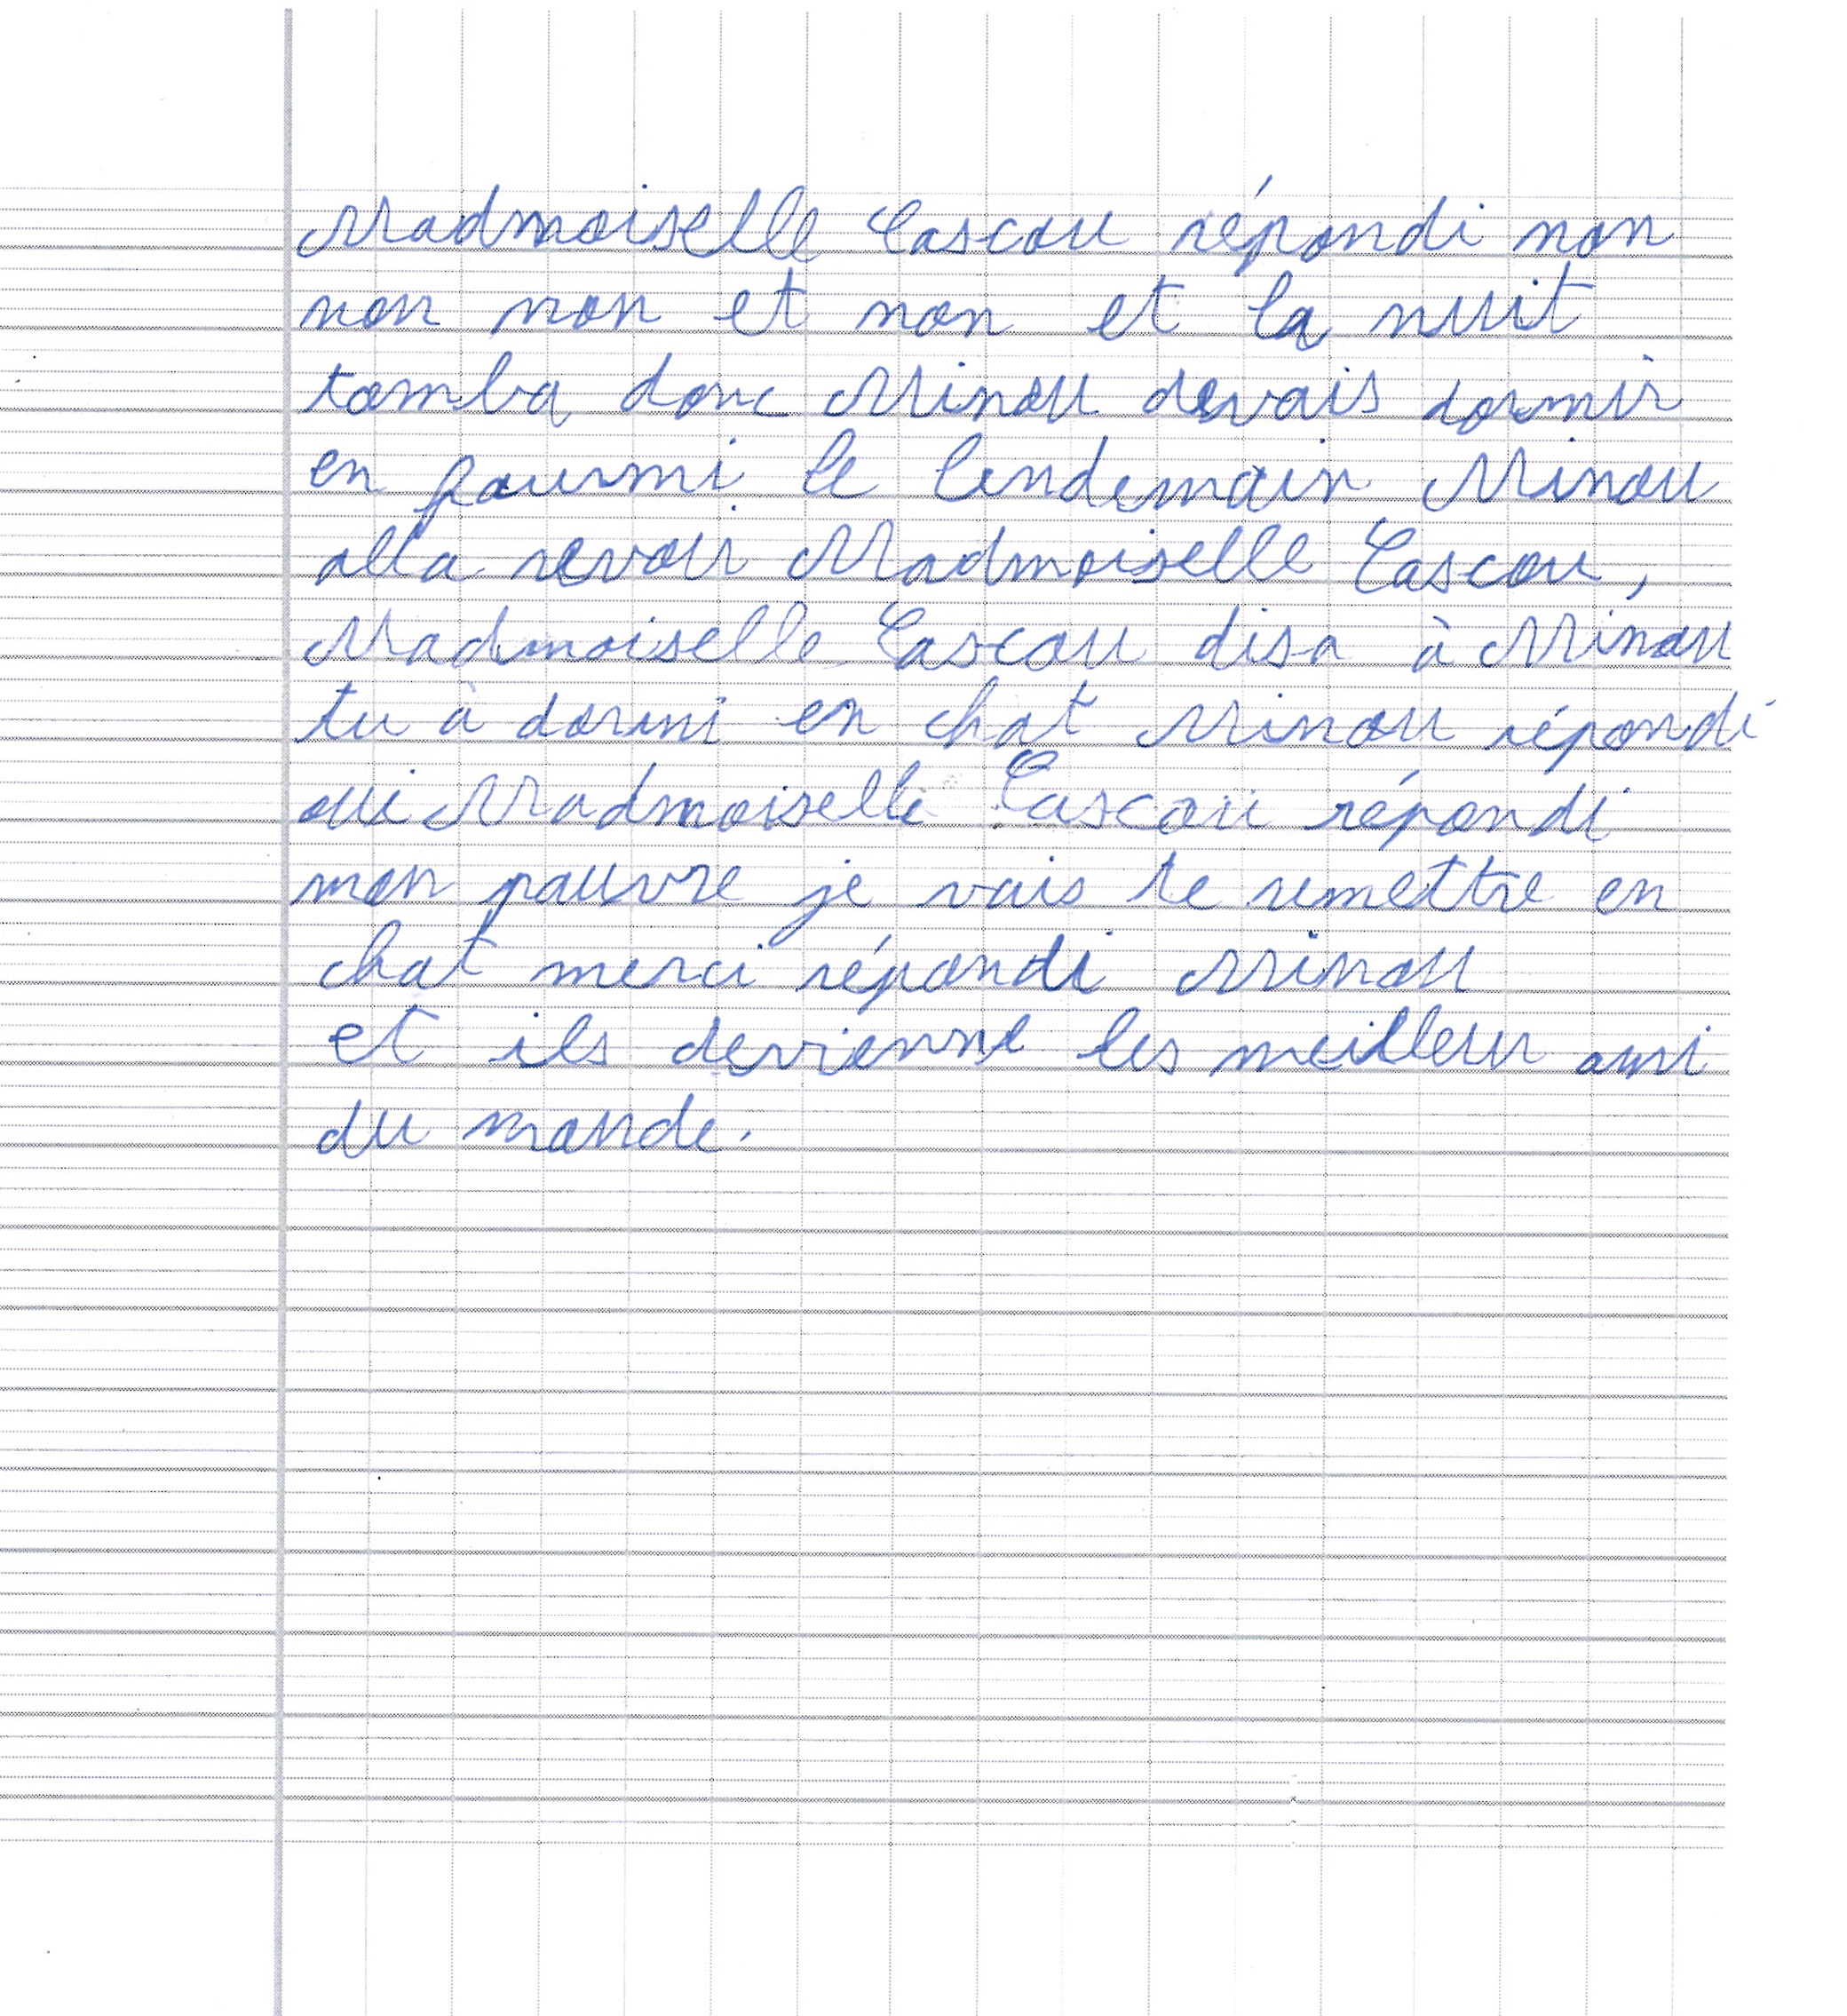 Madmoiselle Cascou répondi non
non non et non et la nuit
tomba donc Minou devais dormir
en fourmi le lendemain Minou
alla revoir Madmoiselle Cascou,
Madmoiselle Cascou disa à Minou
tu à dormi en chat Minou répondi
oui Madmoiselle Cascou répondi
mon pauvre je vais te remettre en
chat merci répondi Minou
et ils devienne les meilleur ami
du monde.